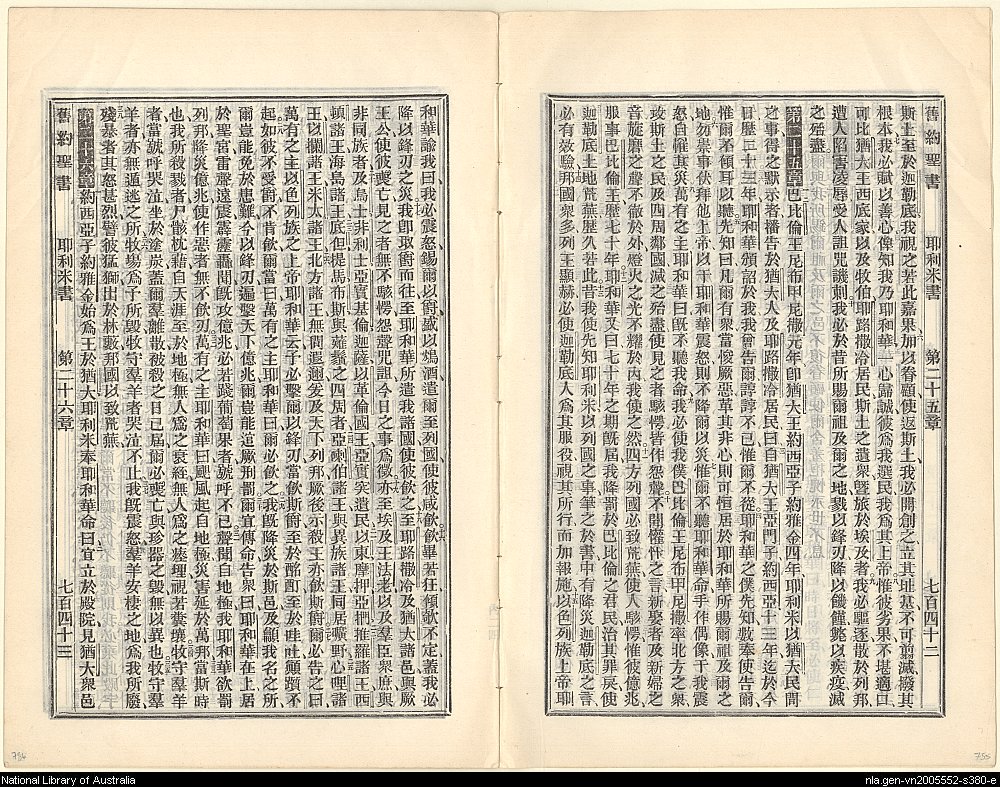 舊約聖書 耶利米書 第二十五章 七百四十二
斯土至於迦勒底我視之若此嘉果加以眷顧使返斯土我必開創之立其址基不可翦滅廢其
根本我必賦以善心俾知我乃耶和華一心歸誠彼爲我選民我爲其上帝惟彼劣果不堪適口
可比猶大王西底家以及牧伯耶路撒冷居民斯土之遺衆暨旅於埃及者我必驅逐散於列邦
遭人陷害凌辱受人詛咒譏刺我必於昔所賜爾祖及爾之地戮以鋒刃降以饑饉斃以疾疫滅
之殆盡
第二十五章巴比倫王尼布甲尼撒元年卽猶大王約西亞子約雅金四年耶利米以猶大民間
之事得之默示者播告於猶大人及耶路撒冷居民曰自猶大王亞門子約西亞十三年迄於今
日歷二十三年耶和華頒詔於我我曾告爾諄諄不已惟爾不從耶和華之僕先知數奉使告爾
惟爾不傾耳以聽先知曰凡爾有衆當悛厥惡革其非心則可恒居於耶和華所賜爾祖及爾之
地勿崇事伏拜他上帝以干耶和華震怒則不降爾以災惟爾不聽耶和華命手作偶像干我震
怒自罹其災萬有之主耶和華曰旣不聽我命我必使我僕巴比倫王尼布甲尼撒率北方之衆
攻斯土之民及四周鄰國滅之殆盡使見之者駭愕皆作怨聲不聞懽忭之言新娶者及新婦之
音旋磨之聲不徹於外燈火之光不耀於內我使之然四方列國必致荒蕪使人駭愕惟彼億兆
服事巴比倫王歷七十年耶和華又曰七十年之期旣屆我降罰於巴比倫之君民治其罪戾使
迦勒底土地荒蕪歷久若此昔我使先知耶利米以列國之事筆之於書中有降災迦勒底之言
必有效驗邦國衆多列王顯赫必使迦勒底人爲其服役視其所行而加報施以色列族上帝耶
和華諭我曰我必震怒錫爾以爵盛以鴆酒遣爾至列國使彼咸飮飮畢若狂傾欹不定蓋我必
降以鋒刃之災我卽取爵而往至耶和華所遣我諸國使彼飮之至耶路撒冷及猶大諸邑與厥
王公使彼喪亡見之者無不駭愕怨聲咒詛今日之事爲徵亦至埃及王法老以及羣臣衆庶與
非同族者及烏士非利士亞實基倫迦薩以革倫國王亞實突遺民以東摩押亞捫推羅諸王西
頓諸王海島諸王底但提馬布斯與薙鬚之四周者亞喇伯諸王與異族諸王同居曠野心哩諸
王以攔諸王米太諸王北方諸王無問遐邇爰及天下列邦厥後示殺王亦飮斯爵爾必告之曰
萬有之主以色列族之上帝耶和華云予必擊爾以鋒刃當飮斯爵至於酩酊至於哇吐顚躓不
起如彼不受爵不肯飮爾當曰萬有之主耶和華曰爾必飮之我旣降災於斯邑及籲我名之所
爾豈能免於患難今以鋒刃遍擊天下億兆爾豈能逭厥刑罰爾宜傳命告衆曰耶和華在上居
於聖宮雷聲遠震霹靂轟聞旣攻億兆必若踐葡萄果者號呼不已聲聞自地極我耶和華欲罰
列邦降災億兆使作惡者無不飮刃萬有之主耶和華曰飓風起自地極災害延於萬邦當斯時
也我所殺戮者尸骸枕藉自天涯至於地極無人爲之哀絰無人爲之瘞埋視若糞壤牧守羣羊
者當號呼哭泣坐於塗炭蓋爾羣離散被殺之日已屆爾必喪亡與珍器之毀無以異也牧守羣
羊者亦無遁逃之所牧場爲予所毀牧守羣羊者哭泣不止我旣震怒羣羊安棲之地爲我所廢
殘暴者其怒甚烈譬彼猛獅出於林藪邦國以致荒蕪
第二十六章約西亞子約雅金始爲王於猶大耶利米奉耶和華命曰宜立於殿院見猶大衆邑
舊約聖書 耶利米書 第二十六章 七百四十三
National Library of Australia
nla.gen-vn2005552-s380-e